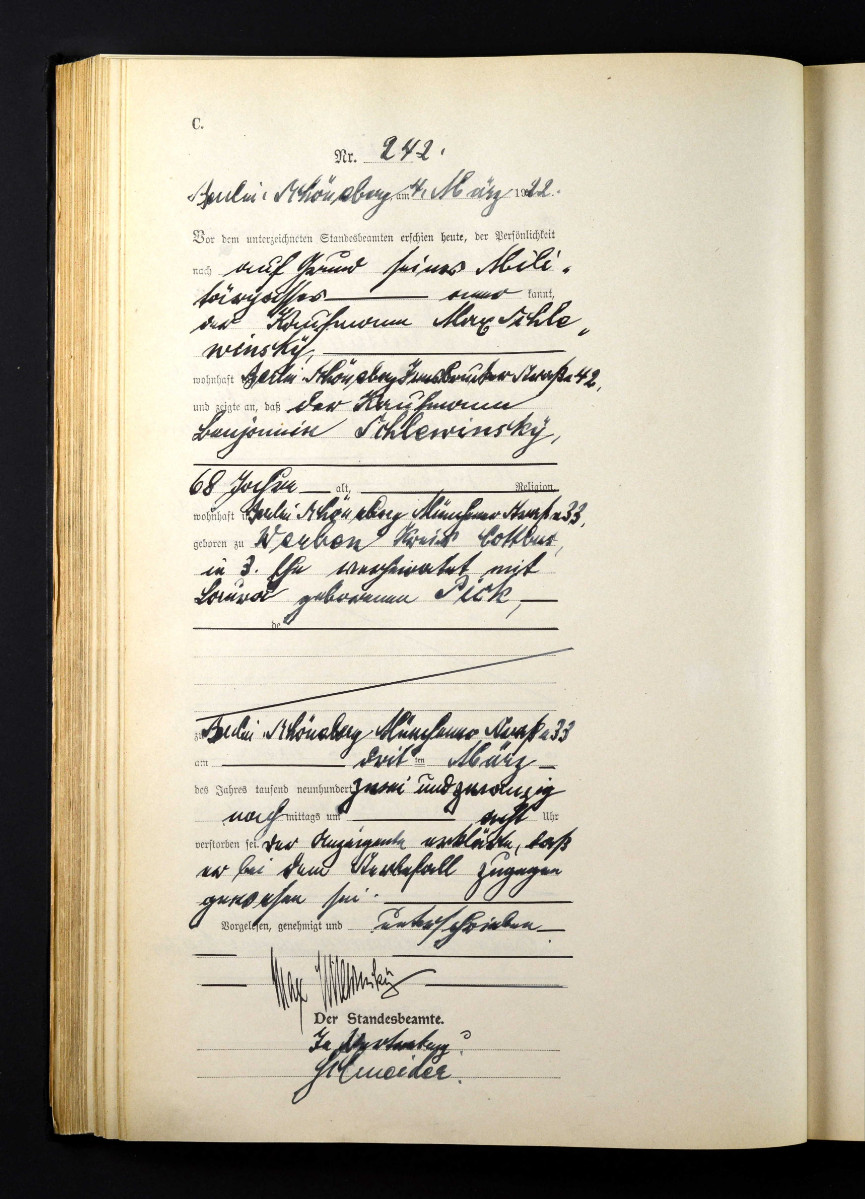 C.
Nr. 242.
Berlin-Schöneberg, am 4. März 1922.
Vor dem unterzeichneten Standesbeamten erschien heute, der Persönlichkeit
nach auf Grund seines Mili-
tärpasses aner kannt,
der Kaufmann Max Schle-
winsky,
wohnhaft Berlin Schöneberg Innsbrucker Straße 42,
und zeigte an, daß der Kaufmann
Benjamin Schlewinsky,
68 Jahre alt, Religion
wohnhaft in Berlin Schöneberg Münchener Straße 33,
geboren zu Werben Kreis Cottbus,
in 3. Ehe verheiratet mit
geborenen Pick,
de
zu Berlin-Schöneberg Münchener Straße 33
am drit ten März
des Jahres tausend neunhundert zwei und zwanzig
nach mittags um acht Uhr
verstorben sei. Der Anzeigende erklärte, daß
er bei dem Sterbefall zugegen
gewesen sei.
Vorgelesen, genehmigt und unterschrieben
Max Schlewinsky
Der Standesbeamte.
In Vertretung:
Schneider.